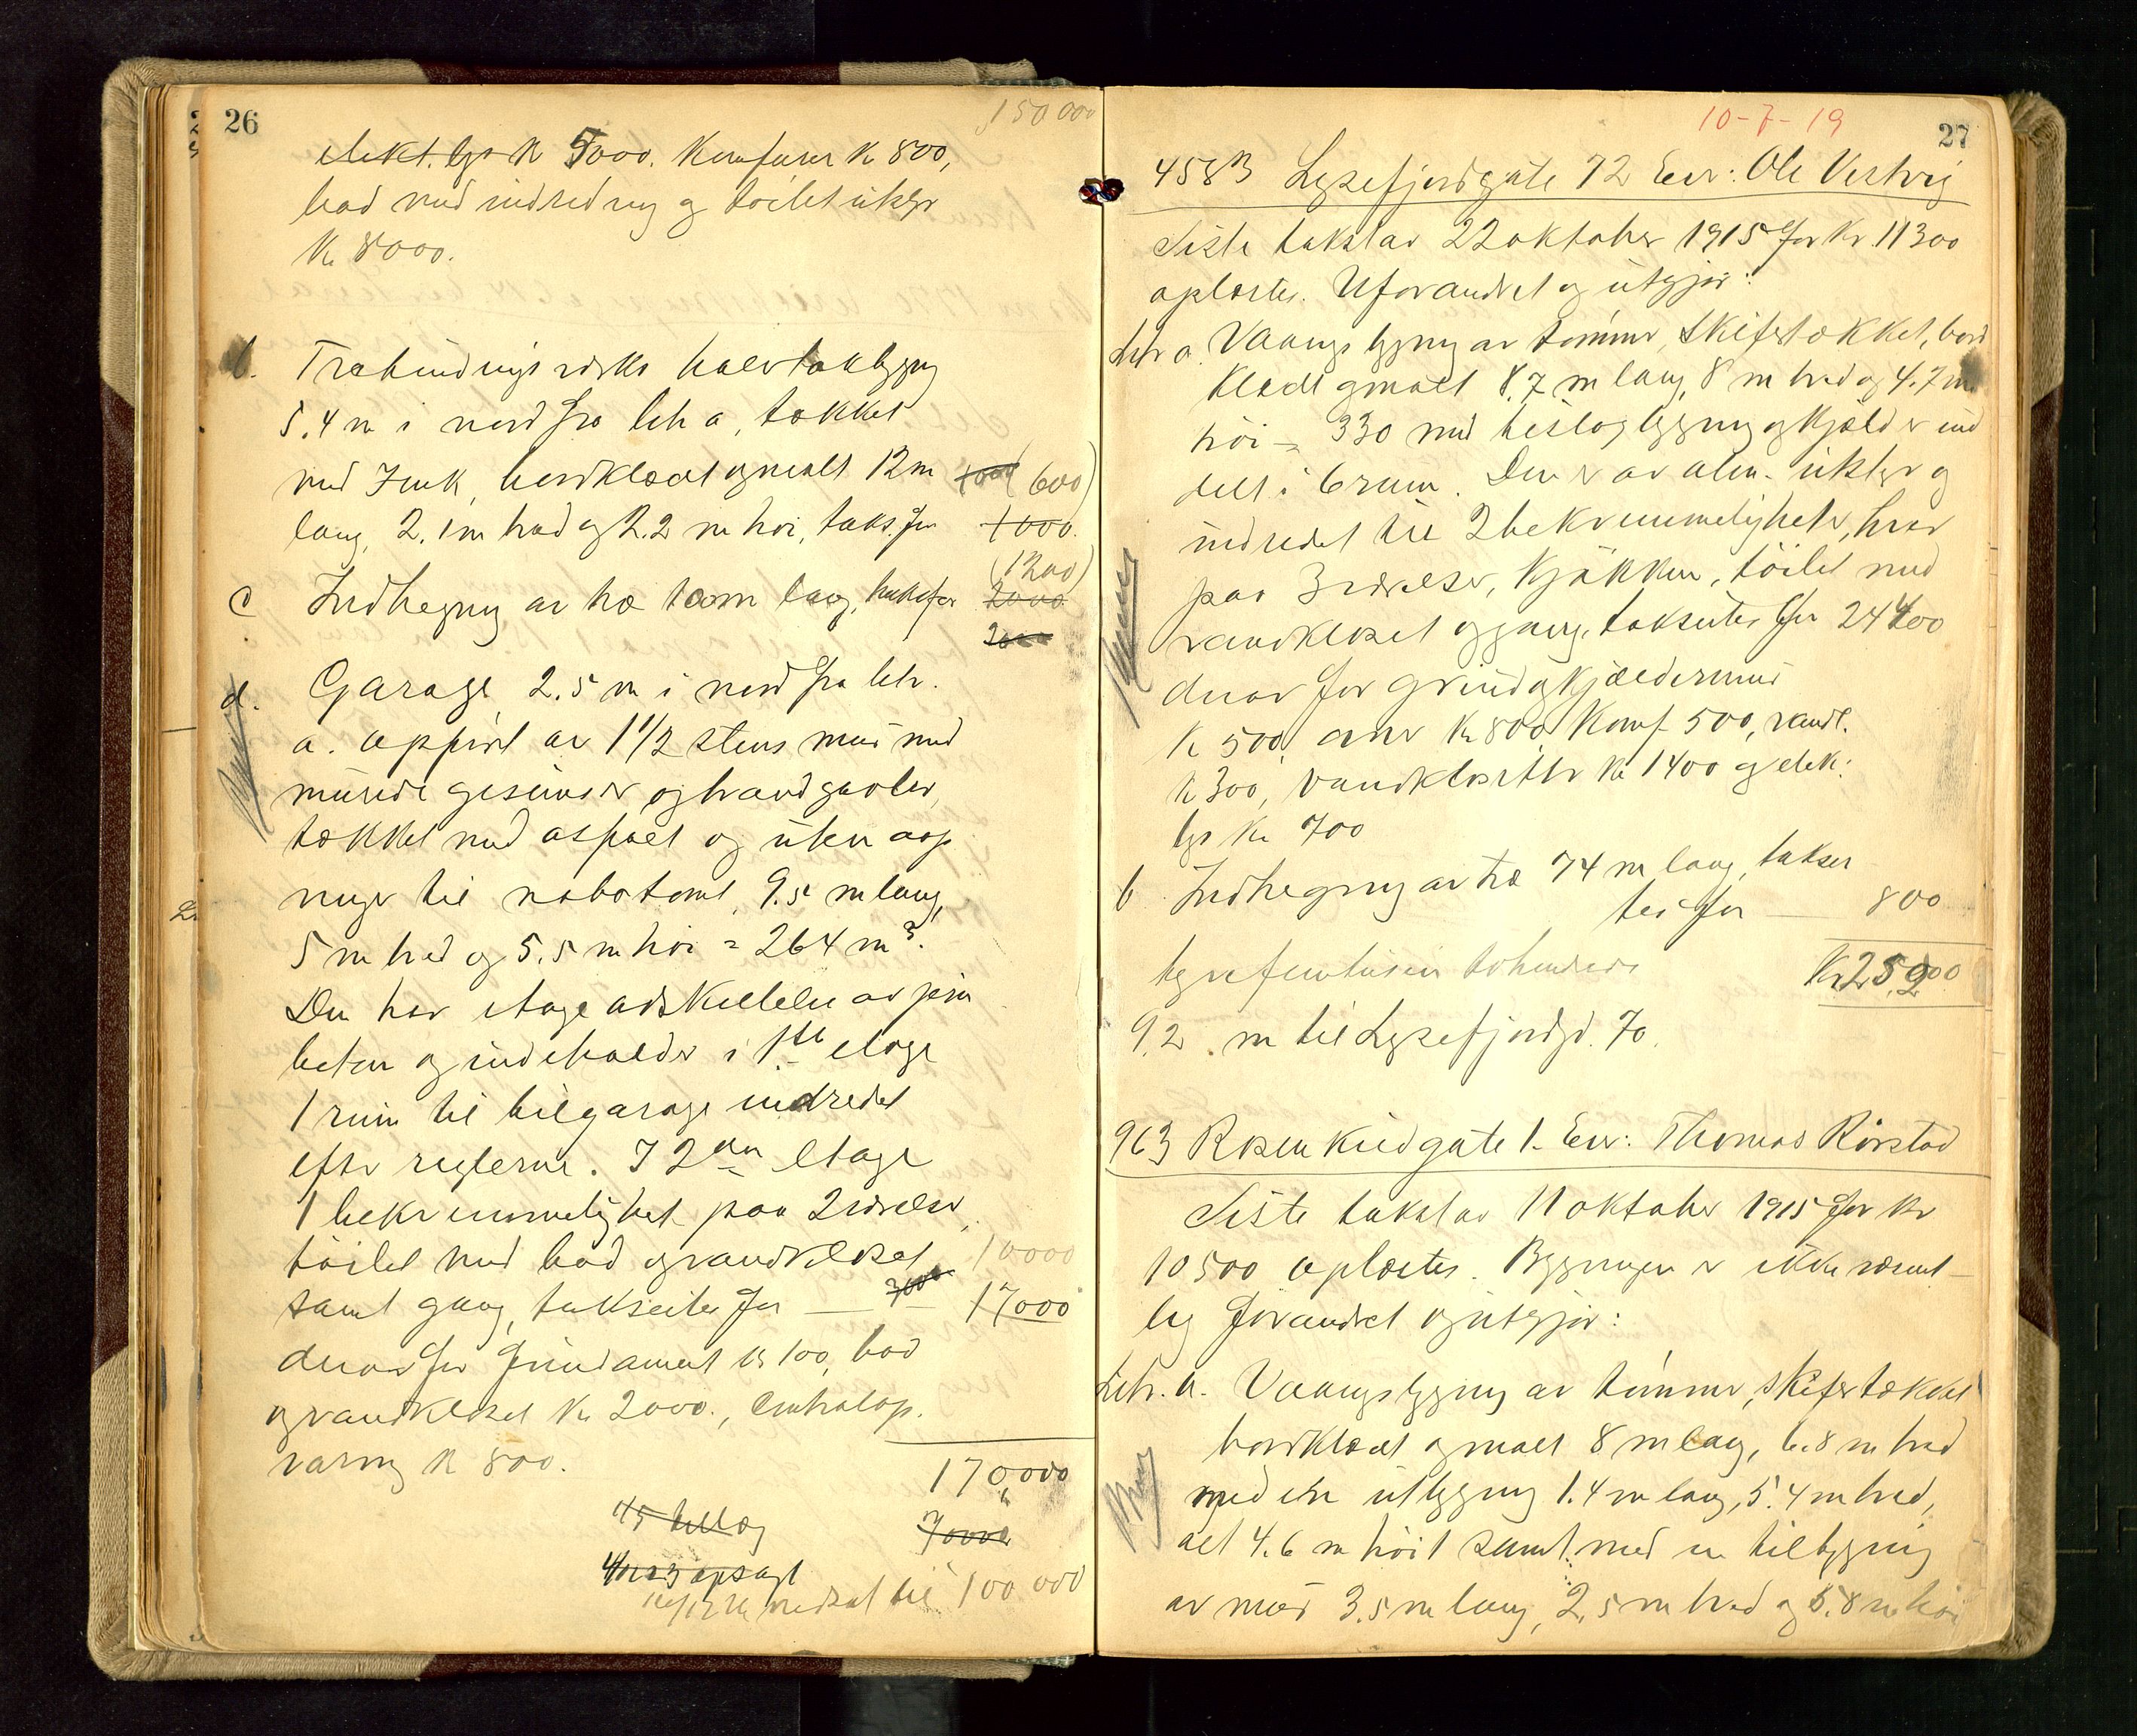 26
150 000
elekt. lys K 5000. Komfurer K 800,
bad med indredning og toilet utstyr
K. 8000.
b. Træbindingsverks halvtakbygg
5.4 m i nord fra litr a, tækket
med zink, bordklædt og malt 12 m 1000 (600)
lang, 2.1 m bred og 2.2 m høi, takst. for 1000.
(1200)
c Indhegning av træ 100 m lang, takst for 2000
2000
d. Garage 2.5 m i nord fra litr.
a. opført av 1 1/2 stens mur med
murede gesimser og brandgavler,
tækket med asfalt og uten aap
ninger til nabotomt, 9.5 m lang,
5 m bred og 5.5 m høi = 264 m³.
Den har etageadskillelse av jern
beton og indeholder i 1ste etage
1 rum til bilgarage indredet
efter reglerne. I 2den etage
1 bekvemmelighet paa 2 værelser,
toilet med bad og vandkloset 10000
samt gang, takseites for — 17000
derav for fundament K 100, bad
og vandkloset K 2000., Centralop.
varmg K 800.
170,000
45 tillæg 70000
opsagt
nedsat til 100 000
10-7-19
27
458B Lysefjordgate 72 Eier: Ole Vestvig
Siste takst av 22 oktober 1915 for Kr. 11300
oplæstes. Uforandret og utgjør:
Litr a. Vaaningsbygning av tømmer, skifertækket, bord
klædt og malt 8.7 m lang, 8 m bred og 4.7 m
høi = 330 med beslag bygning og kjælder ind
delt i 6 rum. Den er av alm. utstyr og
indredet til 2 bekvemmeligheter, hver
paa 3 værelser, kjøkken, toilet med
vandkloset og gang, takseites for 24400
derav for grund og kjældermur
K 500, ovner K 800 Komf 500, vandl.
K 300, vandklosetter K 1400 og elek:
lys K. 700
b Indhegning av træ 74 m lang, takser
tes for — 800
tyvefemtusen tohundrede Kr 25,200
9.2 m til Lysefjordgt. 70.
963 Rosenkildgate 1. Eier: Thomas Rørstad
Siste takst av 11 oktober 1915 for Kr
10500 oplæstes. Bygningen er ikke væsent-
lig forandret og utgjør:
Litr. a. Vaaningsbygning av tømmer, skifertækket
bordklædt og malt 8 m lang, 6.8 m bred
med en utbygning 1.4 m lang, 5.4 m bred,
alt 4.6 m høit samt med en tilbygning
av mur 3.5 m lang, 2.5 m bred og 5.8 m høi